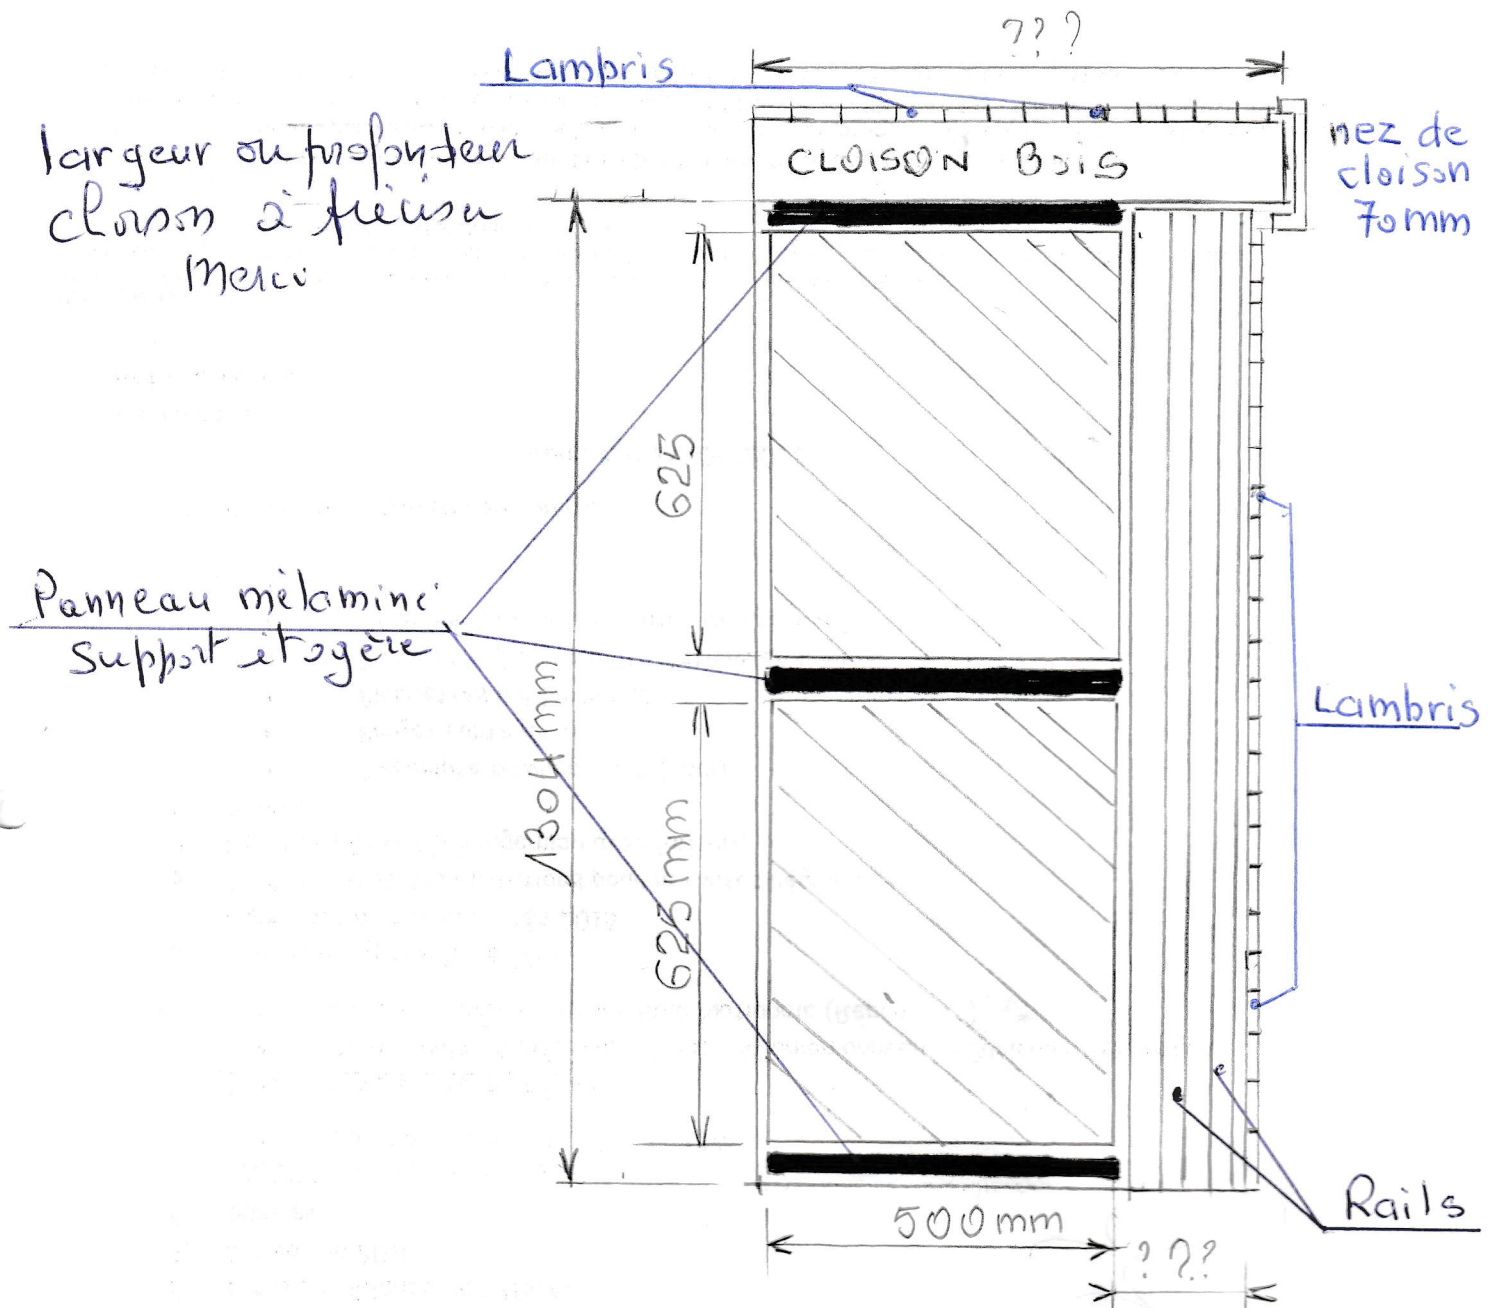 ???
Lambris
largeur ou profondeur
cloison à préciser
Merci
CLOISON Bois
nez de
cloison
70mm
625
Panneau mélaminé
support étagère
1304 mm
625 mm
Lambris
Rails
500mm
???